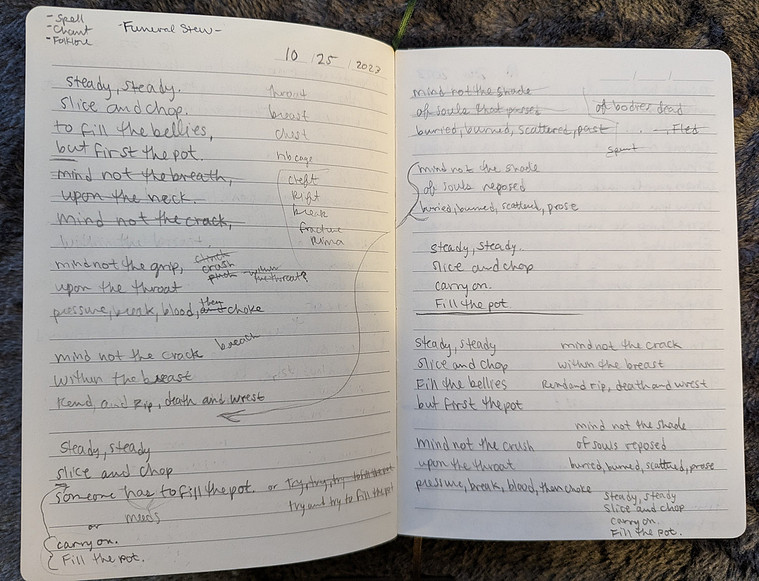 - Spell
- Chant
- Folklore
- Funeral Stew -
10 / 25 / 2023
steady, steady.
slice and chop.
to fill the bellies,
but first the pot.
mind not the breath,
upon the neck.
mind not the crack,
within the breast,
throat
breast
chest
rib cage
cleft
Rift
break
fracture
Rima
mind not the grip,
upon the throat
pressure, break, blood, and then choke
clinch
crush
push
within the throat?
mind not the crack
breach
within the breast
Rend, and Rip, death and wrest
Steady, steady
slice and chop
someone has to fill the pot. or Try, try, try to fill the pot
needs
try and try to fill the pot
or
carry on.
Fill the pot.
mind not the shade
of souls that passed
of bodies dead
buried, burned, scattered, past
Fled
spent
mind not the shade
of souls reposed
buried, burned, scattered, prose
steady, steady.
slice and chop
carry on.
Fill the pot
Steady, steady
slice and chop
Fill the bellies
but first the pot
mind not the crush
upon the throat
pressure, break, blood, then choke
mind not the crack
within the breast
Rend and rip, death and wrest
mind not the shade
of souls reposed
buried, burned, scattered, prose
steady, steady
slice and chop
carry on.
Fill the pot.